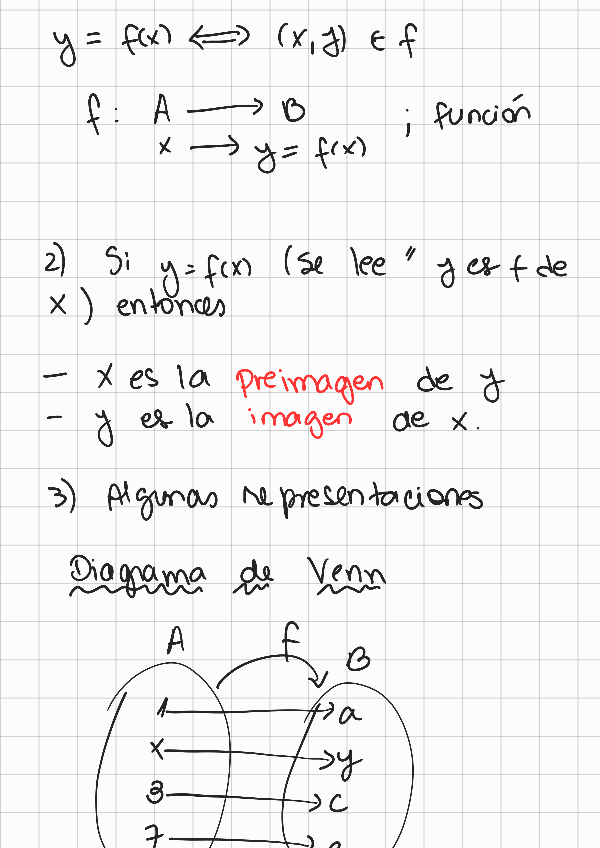 y = f(x) ⟺ (x,y) ∈ f
f: A ⟶ B ; función
x ⟶ y = f(x)
2) Si y = f(x) (se lee " y es f de
x ) entonces
— x es la preimagen de y
- y es la imagen de x.
3) Algunas representaciones
Diagrama de Venn
A f B
1 a
x y
3 c
7